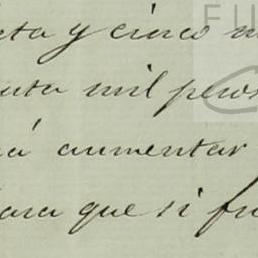 nta y cinco m
enta mil pesos
rá aumentar
para que si fu